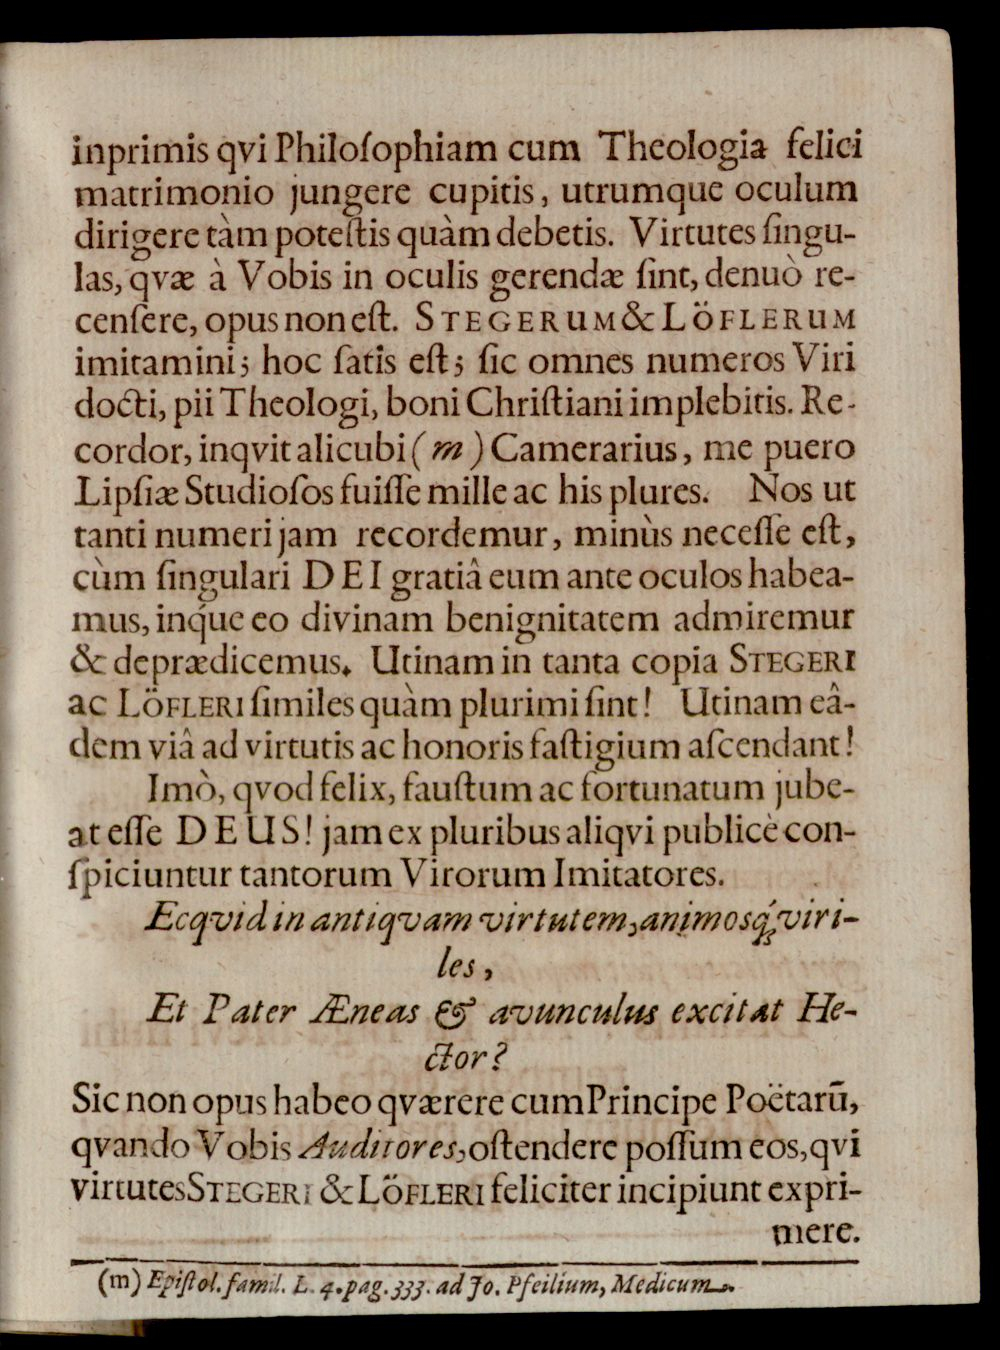 inprimis qvi Philoſophiam cum Theologia felici
matrimonio jungere cupitis, utrumque oculum
dirigere tàm poteſtis quàm debetis. Virtutes ſingu-
las, qvæ à Vobis in oculis gerendæ ſint, denuò re-
cenſere, opus non eſt. STEGERUM & LÖFLERUM
imitamini; hoc ſatis eſt; ſic omnes numeros Viri
docti, pii Theologi, boni Chriſtiani implebitis. Re-
cordor, inqvit alicubi (m) Camerarius, me puero
Lipſiæ Studioſos fuiſſe mille ac his plures. Nos ut
tanti numeri jam recordemur, minùs neceſſe eſt,
cùm ſingulari DEI gratiâ eum ante oculos habea-
mus, inq́ue eo divinam benignitatem admiremur
& deprædicemus. Utinam in tanta copia STEGERI
ac LÖFLERI ſimiles quàm plurimi ſint! Utinam eâ-
dem viâ ad virtutis ac honoris faſtigium aſcendant!
Imò, qvod felix, fauſtum ac fortunatum jube-
at eſſe DEUS! jam ex pluribus aliqvi publicè con-
ſpiciuntur tantorum Virorum Imitatores.
Ecqvid in antiqvam virtutem, animosq́; viri-
les,
Et Pater Æneas & avunculus excitat He-
ctor?
Sic non opus habeo qværere cum Principe Poëtarū,
qvando Vobis Auditores, oſtendere poſſum eos, qvi
virtutes STEGERI & LÖFLERI feliciter incipiunt expri-
mere.
(m) Epiſtol. famil. L. 4. pag. 333. ad Jo. Pfeilium, Medicum.